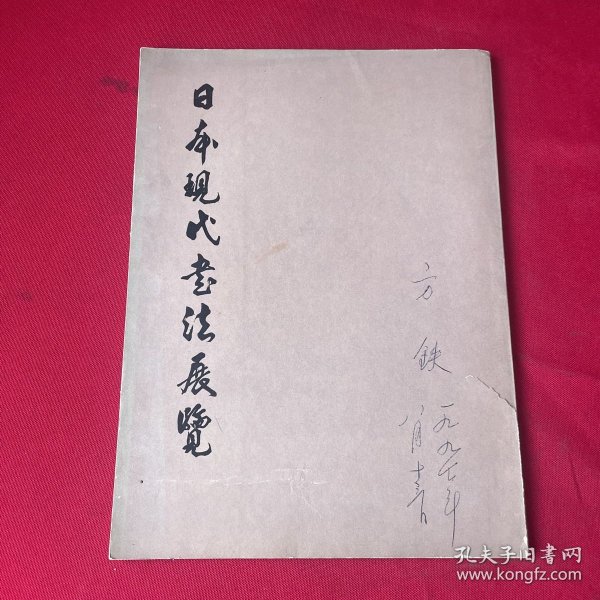 日本現代書法展覽
方鉄
一九九七年
八月十三日
孔夫子旧書网
www.kongfz.com